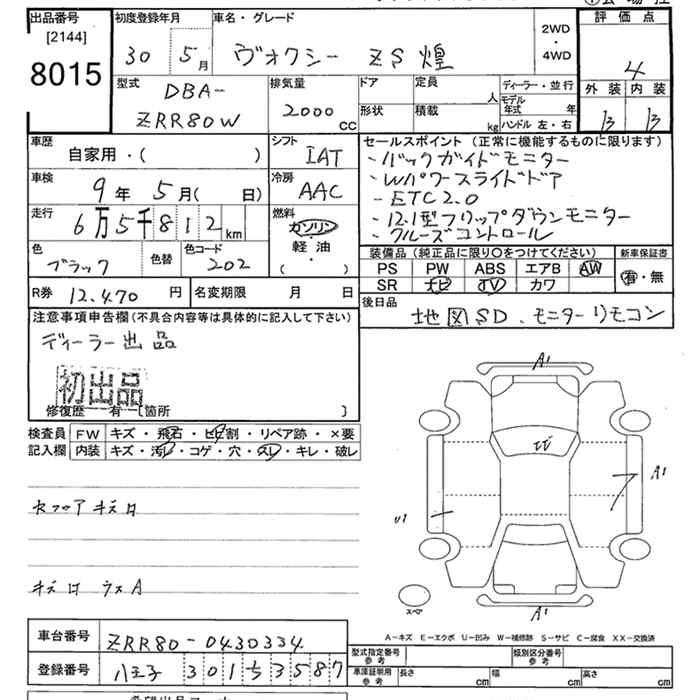 出品番号
[2144]
8015
初度登録年月
30 5月
車名・グレード
ヴォクシー ZS 煌
2WD
・
4WD
評価点
4
外装 内装
B B
型式
DBA-
ZRR80W
排気量
2000
cc
ドア
形状
定員
人
積載
kg
ディーラー・並行
モデル年式 年
ハンドル 左・右
車歴
自家用・( )
シフト
IAT
車検
9年5月( 日)
冷房
AAC
走行
6万5千812km
燃料
ガソリン
・
軽油
( )
色
ブラック
色替
色コード
202
R券 12,470 円
名変期限 月 日
セールスポイント (正常に機能するものに限ります)
・バックガイドモニター
・Wパワースライドドア
・ETC2.0
・12.1型フリップダウンモニター
・クルーズコントロール
装備品 (純正品に限り○をつけてください)
PS PW ABS エアB AW
SR ナビ TV カワ
新車保証書
有・無
後日品
地図SD、モニターリモコン
注意事項申告欄(不具合内容等は具体的に記入して下さい)
ディーラー出品
初出品
修復歴 有[箇所 ]
検査員
記入欄
FW キズ・飛石・ヒビ割・リペア跡・×要
内装 キズ・汚レ・コゲ・穴・スレ・キレ・破レ
セフロアキズロ
キズロ ラスA
A1
U1
A1
A1
スペア
A−キズ E−エクボ U−凹み W−補修跡 S−サビ C−腐食 XX−交換済
車台番号 ZRR80-0430334
登録番号 八王子 301 ち 3587
型式指定番号
参考
類別区分番号
参考
車庫証明用
参考
長さ cm
幅 cm
高さ cm